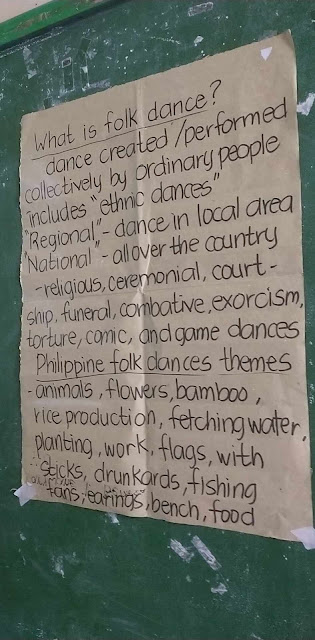 What is folk dance?
dance created/performed
collectively by ordinary people
includes "ethnic dances"
"Regional" - dance in local area
"National" - all over the country
- religious, ceremonial, court-
ship, funeral, combative, exorcism,
torture, comic, and game dances
Philippine folk dances themes
- animals, flowers, bamboo,
rice production, fetching water,
planting, work, flags, with
sticks, drunkards, fishing
fans, earings, bench, food